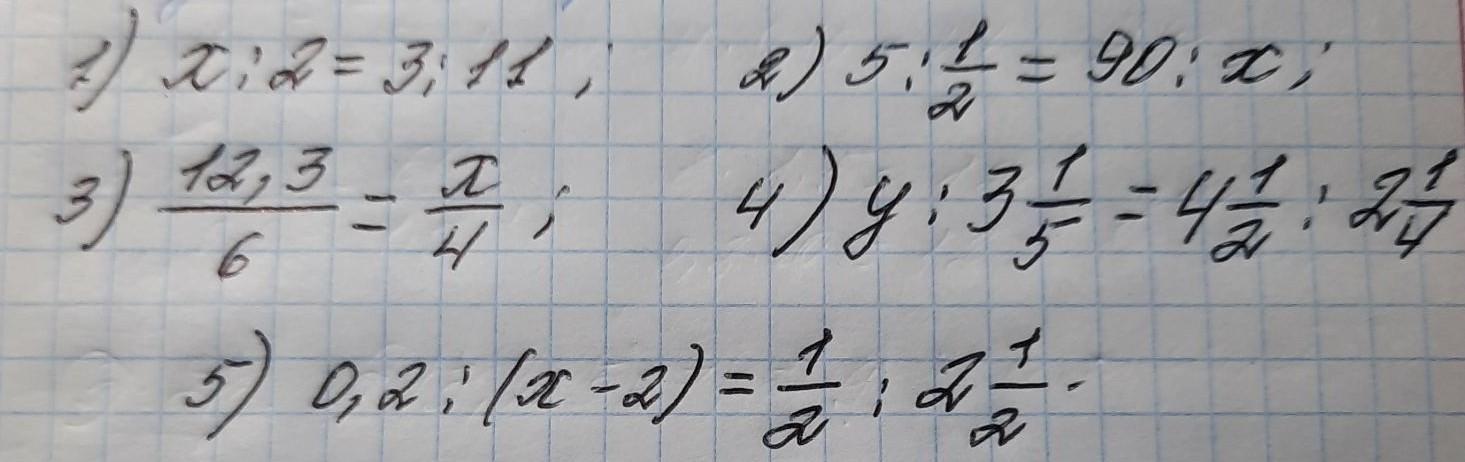 1) x : 2 = 3 : 11 ; 2) 5 : 1/2 = 90 : x ;
3) 12,3/6 = x/4 ; 4) y : 3 1/5 = 4 1/2 : 2 1/4
5) 0,2 : (x - 2) = 1/2 : 2 1/2 .